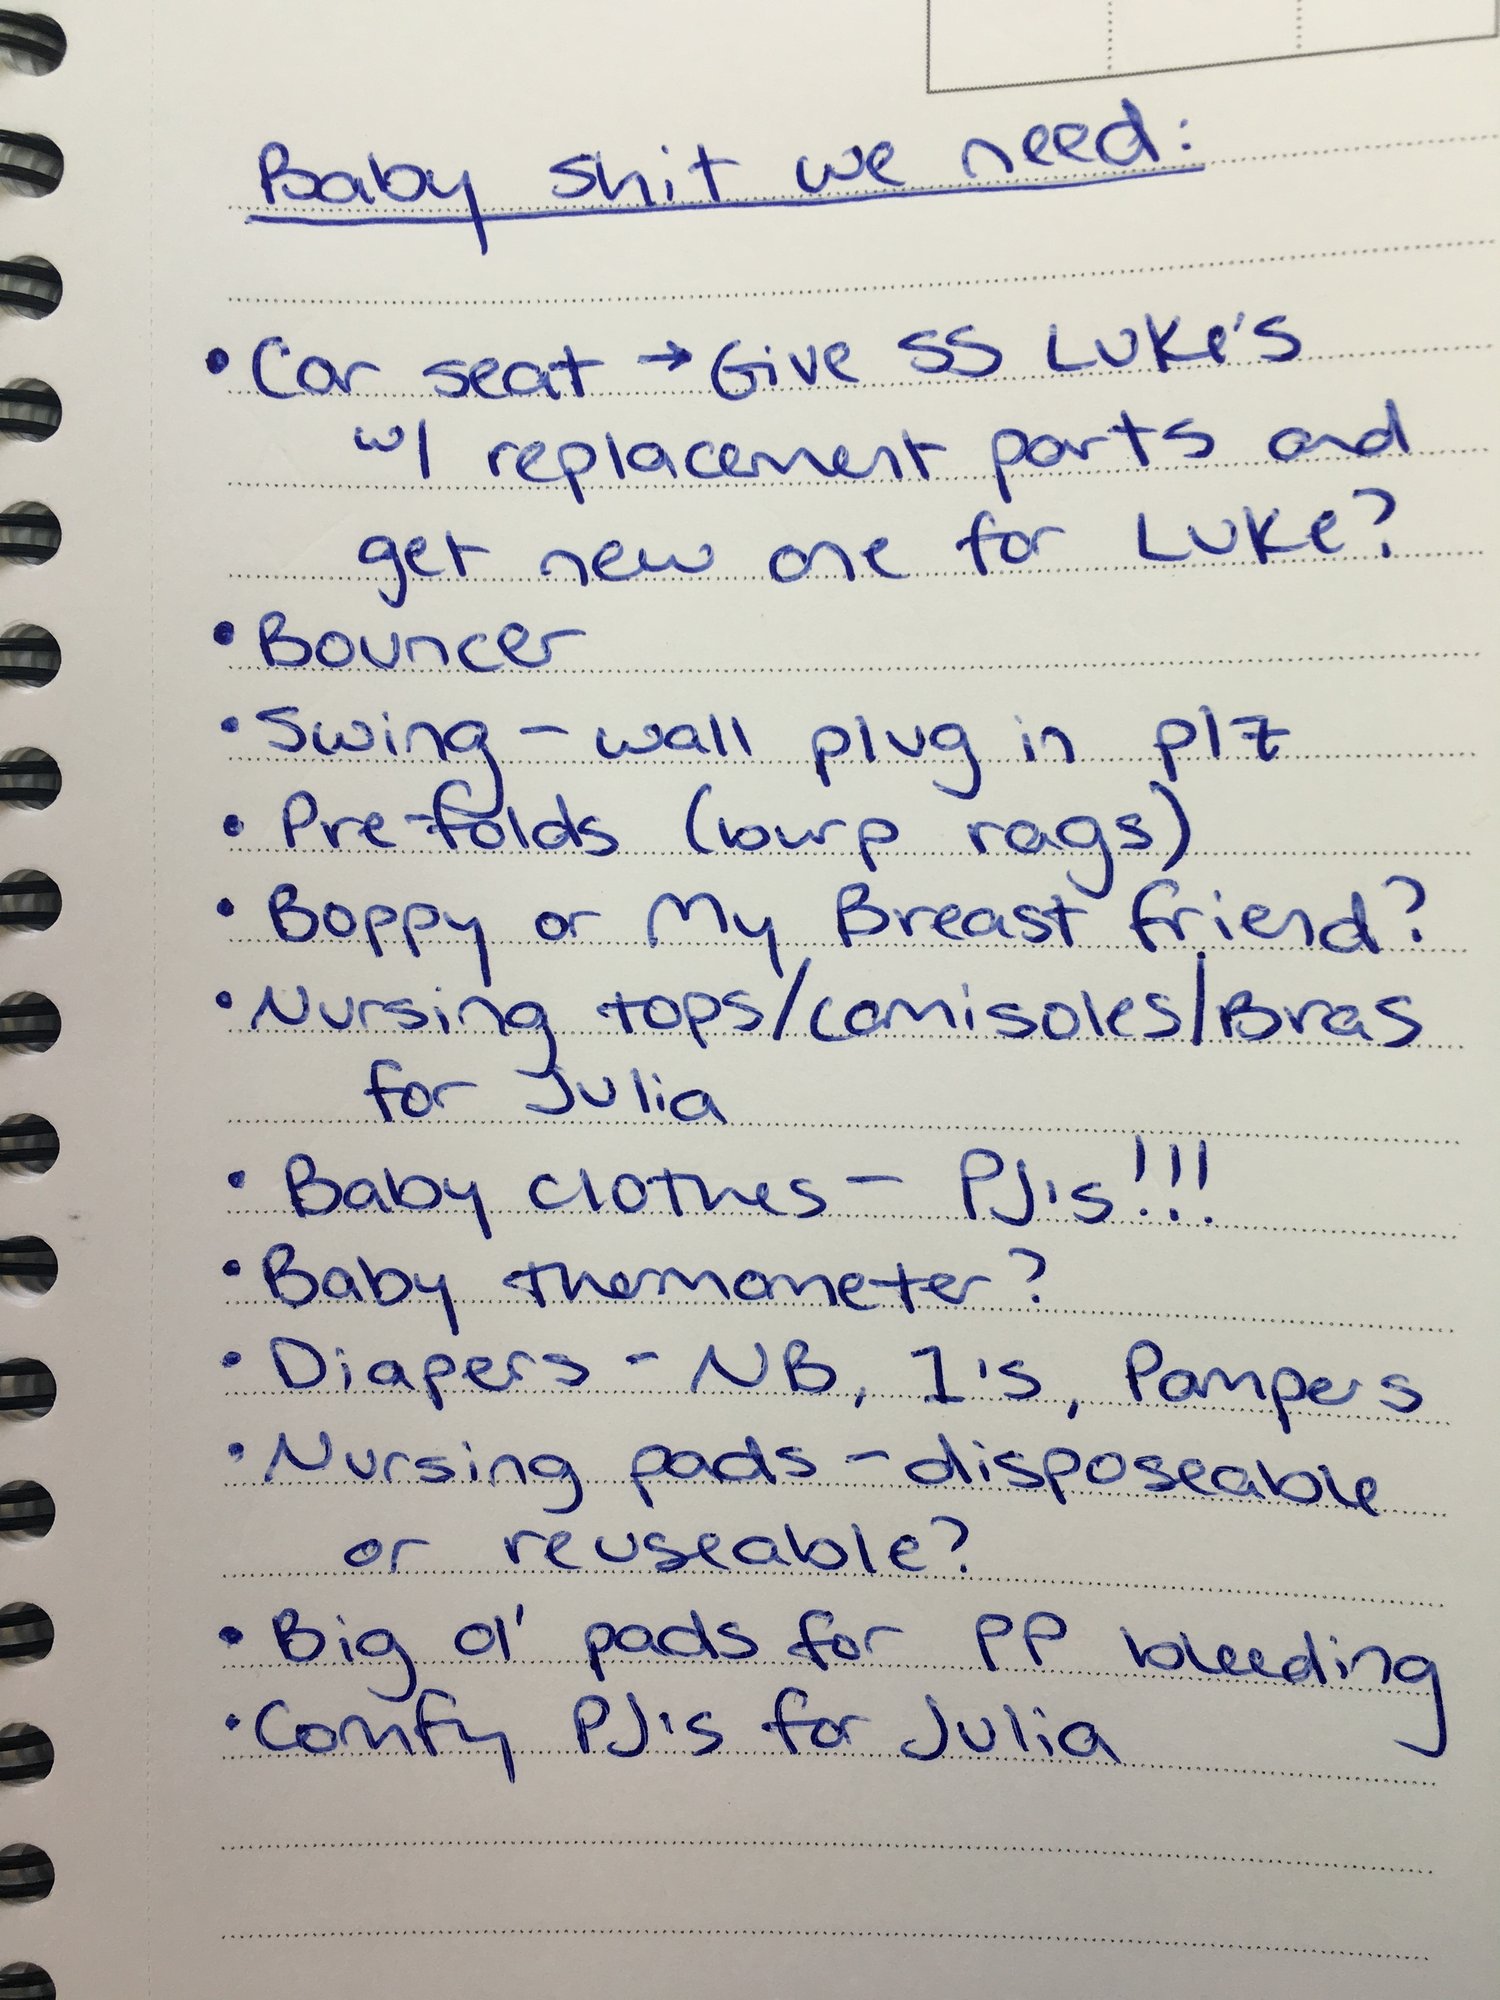 Baby shit we need:
• Car seat → Give SS Luke's
w/ replacement parts and
get new one for Luke?
• Bouncer
• Swing - wall plug in plz
• Pre-folds (burp rags)
• Boppy or My Breast friend?
• Nursing tops/camisoles/Bras
for Julia
• Baby clothes - PJ's!!!
• Baby themometer?
• Diapers - NB, 1's, Pampers
• Nursing pads - disposeable
or reuseable?
• Big ol' pads for PP bleeding
• Comfy PJ's for Julia